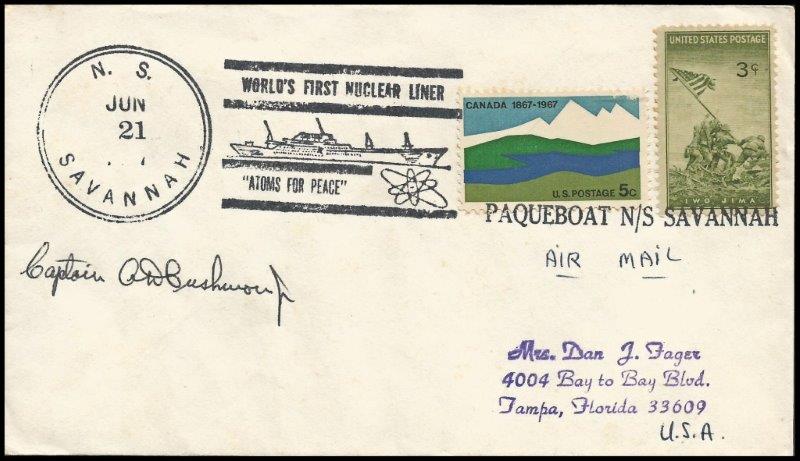 N. S.
JUN
21
SAVANNAH
WORLD'S FIRST NUCLEAR LINER
"ATOMS FOR PEACE"
CANADA 1867-1967
U.S. POSTAGE 5c
UNITED STATES POSTAGE
3¢
IWO JIMA
PAQUEBOAT N/S SAVANNAH
AIR MAIL
Captain
Mrs. Dan J. Fager
4004 Bay to Bay Blvd.
Tampa, Florida 33609
U.S.A.